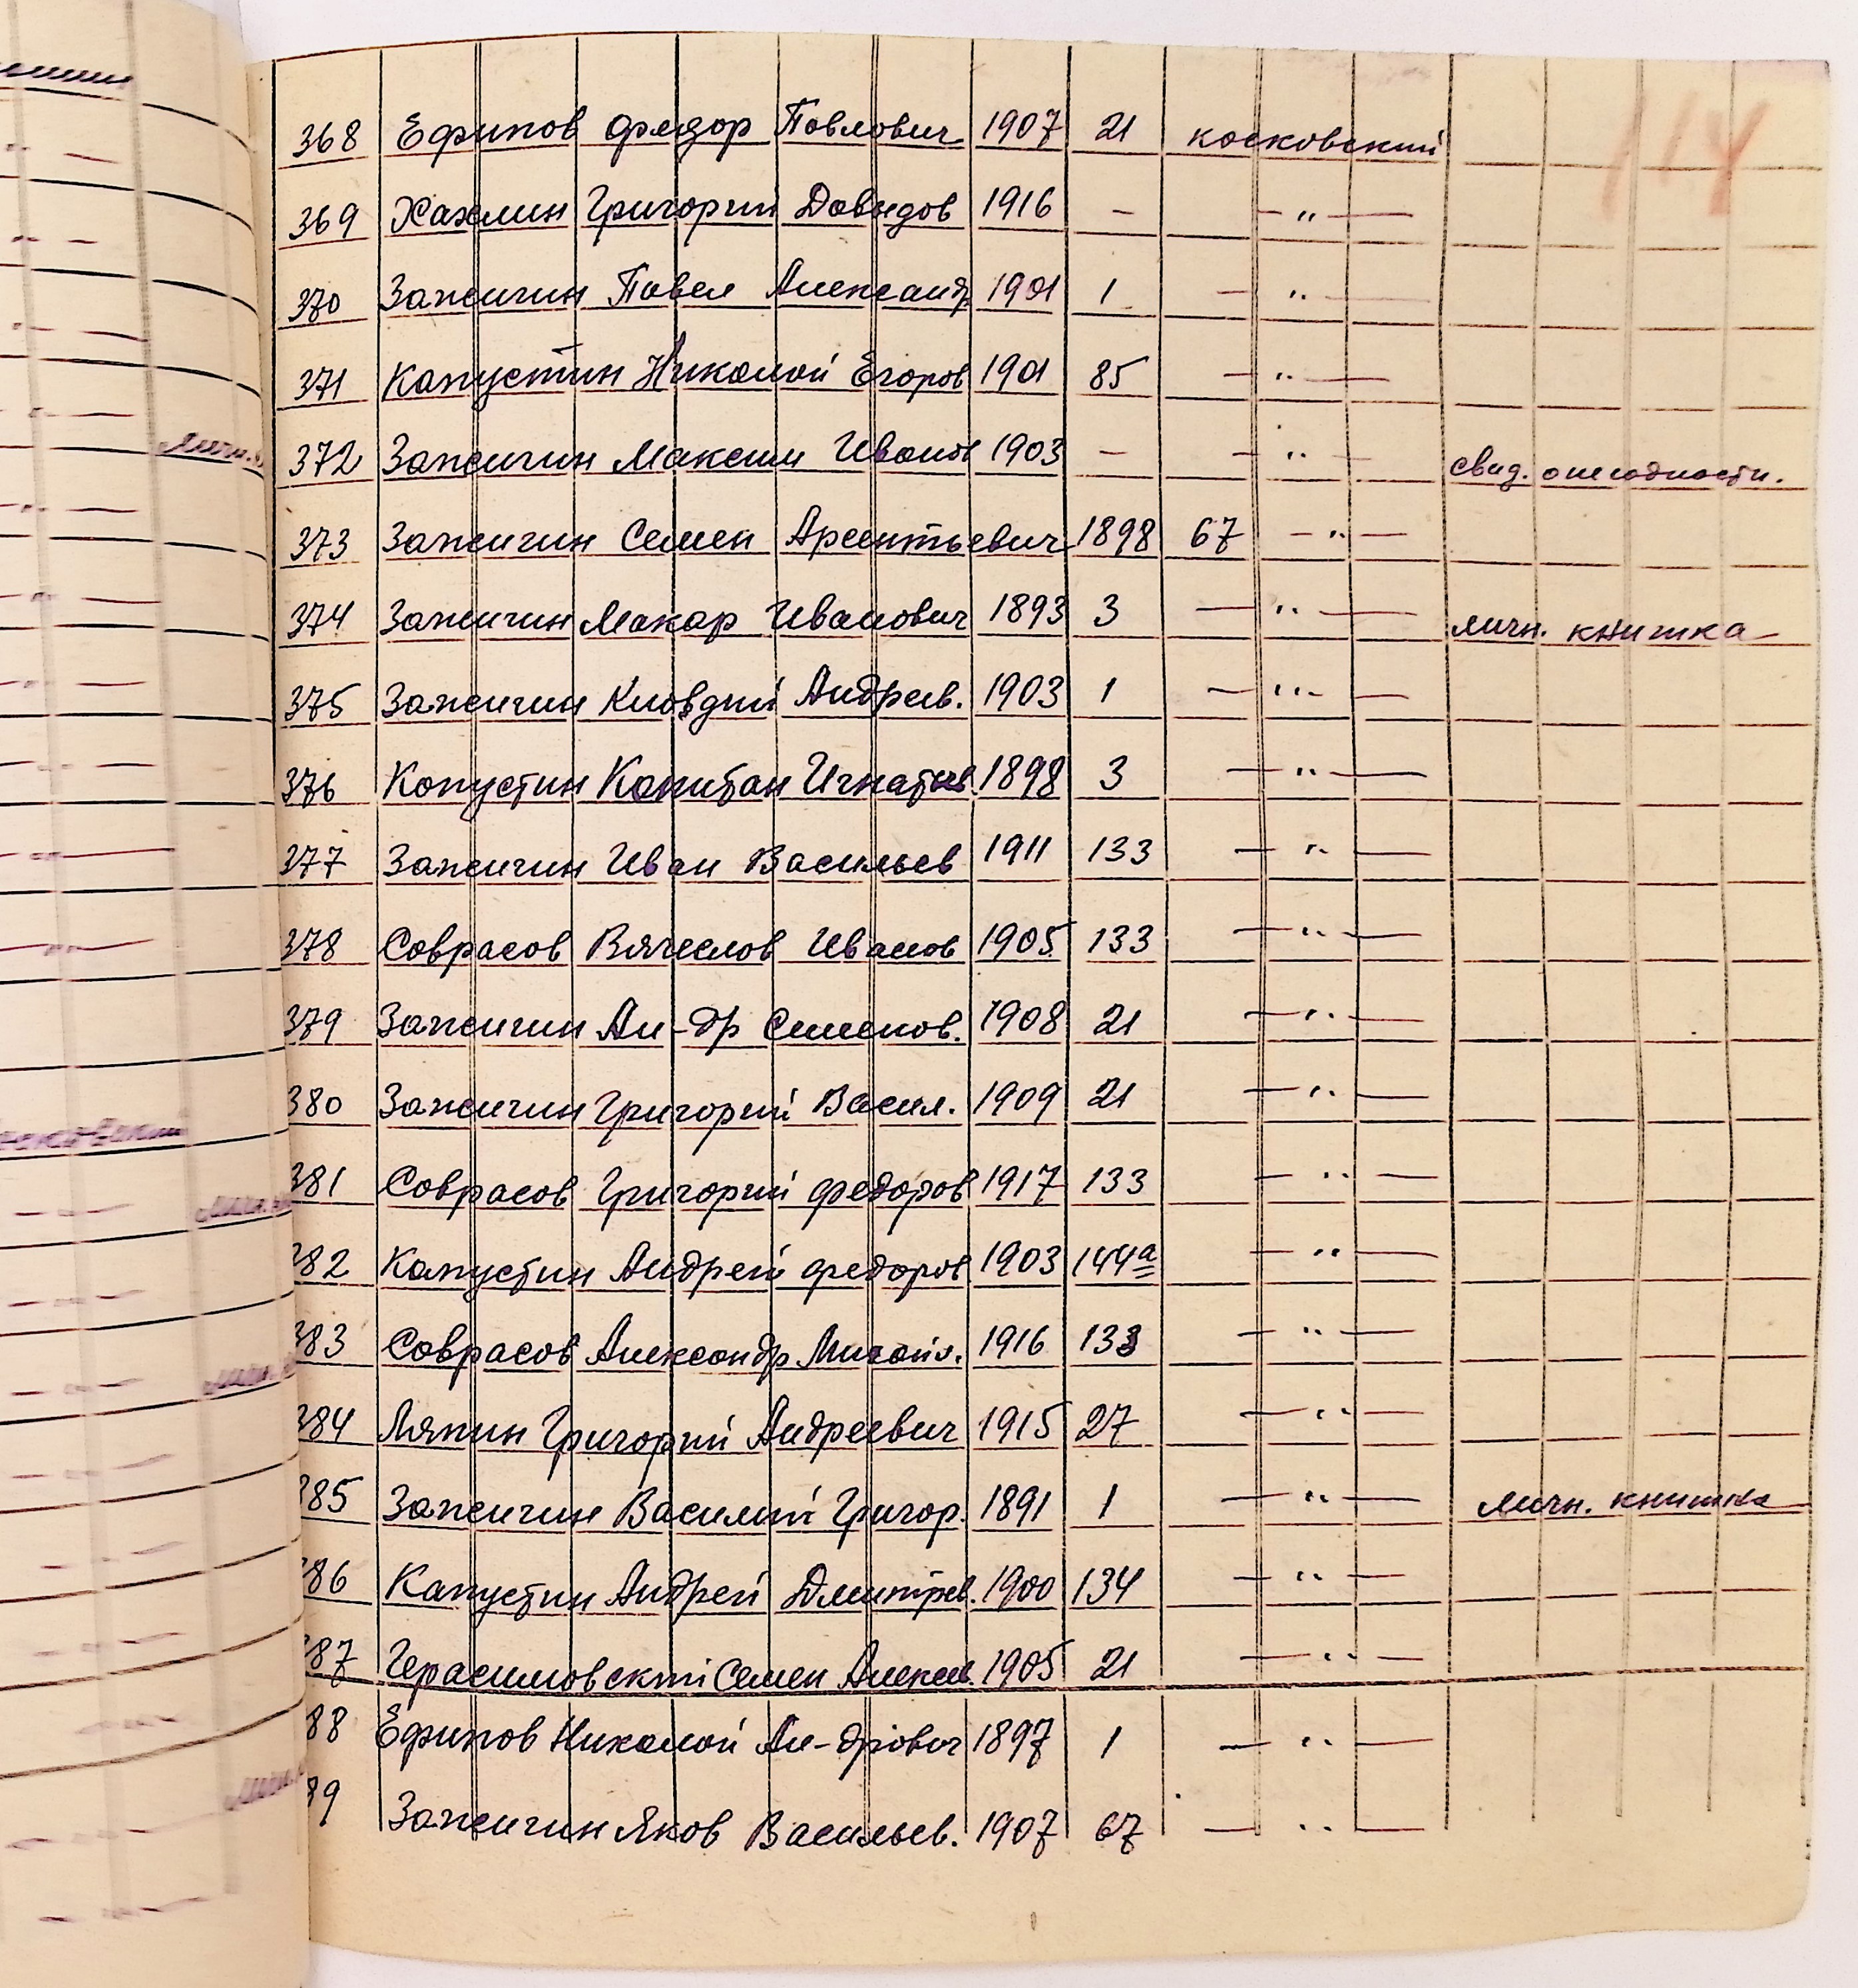 114
368 Ефипов Федор Повлович 1907 21 косковский
369 Хахлин Григорий Довыдов 1916 - - " -
370 Зажигин Повел Александр 1901 1 - " -
371 Капустин Николой Егоров 1901 85 - " -
372 Зажигин Максим Ивонов 1903 - - " - свид. о негодности.
373 Зажигин Семен Арсентьевич 1898 67 - " -
374 Зажигин Макар Иванович 1893 3 - " - личн. книжка
375 Зажигин Кловдий Андреев. 1903 1 - " -
376 Копустин Копитан Игнатьев. 1898 3 - " -
377 Зажигин Иван Васильев 1911 133 - " -
378 Соврасов Вячеслов Иванов 1905 133 - " -
379 Зажигин Ал-др Семенов. 1908 21 - " -
380 Зажигин Григорий Васил. 1909 21 - " -
381 Соврасов Григорий Федоров 1917 133 - " -
382 Капустин Андрей Федоров 1903 144а - " -
383 Соврасов Александр Михайл. 1916 133 - " -
384 Ляпин Григорий Андреевич 1915 27 - " -
385 Зажигин Василий Григор. 1891 1 - " - личн. книжка
86 Капустин Андрей Дмитрев. 1900 134 - " -
87 Герасимовский Семен Алексев. 1905 21 - " -
88 Ефипов Николой Ал-дрович 1897 1 - " -
89 Зажигин Яков Васильев. 1907 67 - " -